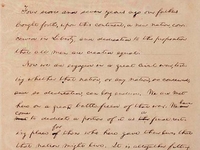 Four score and seven years ago our fathers
brought forth, upon this continent, a new nation, con-
ceived in Liberty, and dedicated to the proposition
that all men are created equal.
Now we are engaged in a great civil war, test-
ing whether that nation, or any nation, so conceived,
and so dedicated, can long endure. We are met
here on a great battlefield of that war. We have
come
to dedicate a portion of it as the final rest-
ing place of those who here gave their lives that
that nation might live. It is altogether fitting